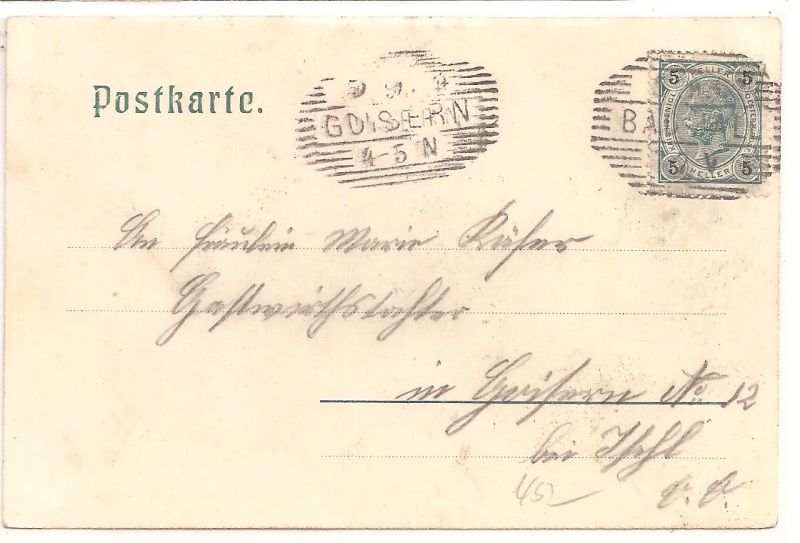 Postkarte.
GOISERN
4-5 N
BA
5 HELLER 5
5 HELLER 5
An Fräulein Marie
Gastwirthstochter
in Goisern No 12
bei Ischl
O. O.